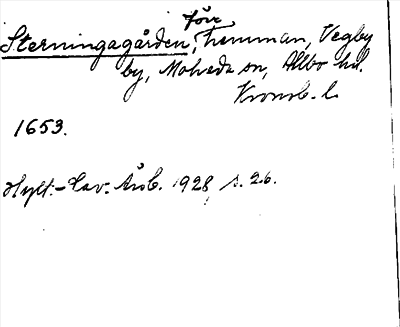 förr
Sterningagården, hemman, Vegby
by, Moheda sn, Allbo hd.
Kronob. l.
1653.
Hylt.-Cav. Årsb. 1928, s. 26.